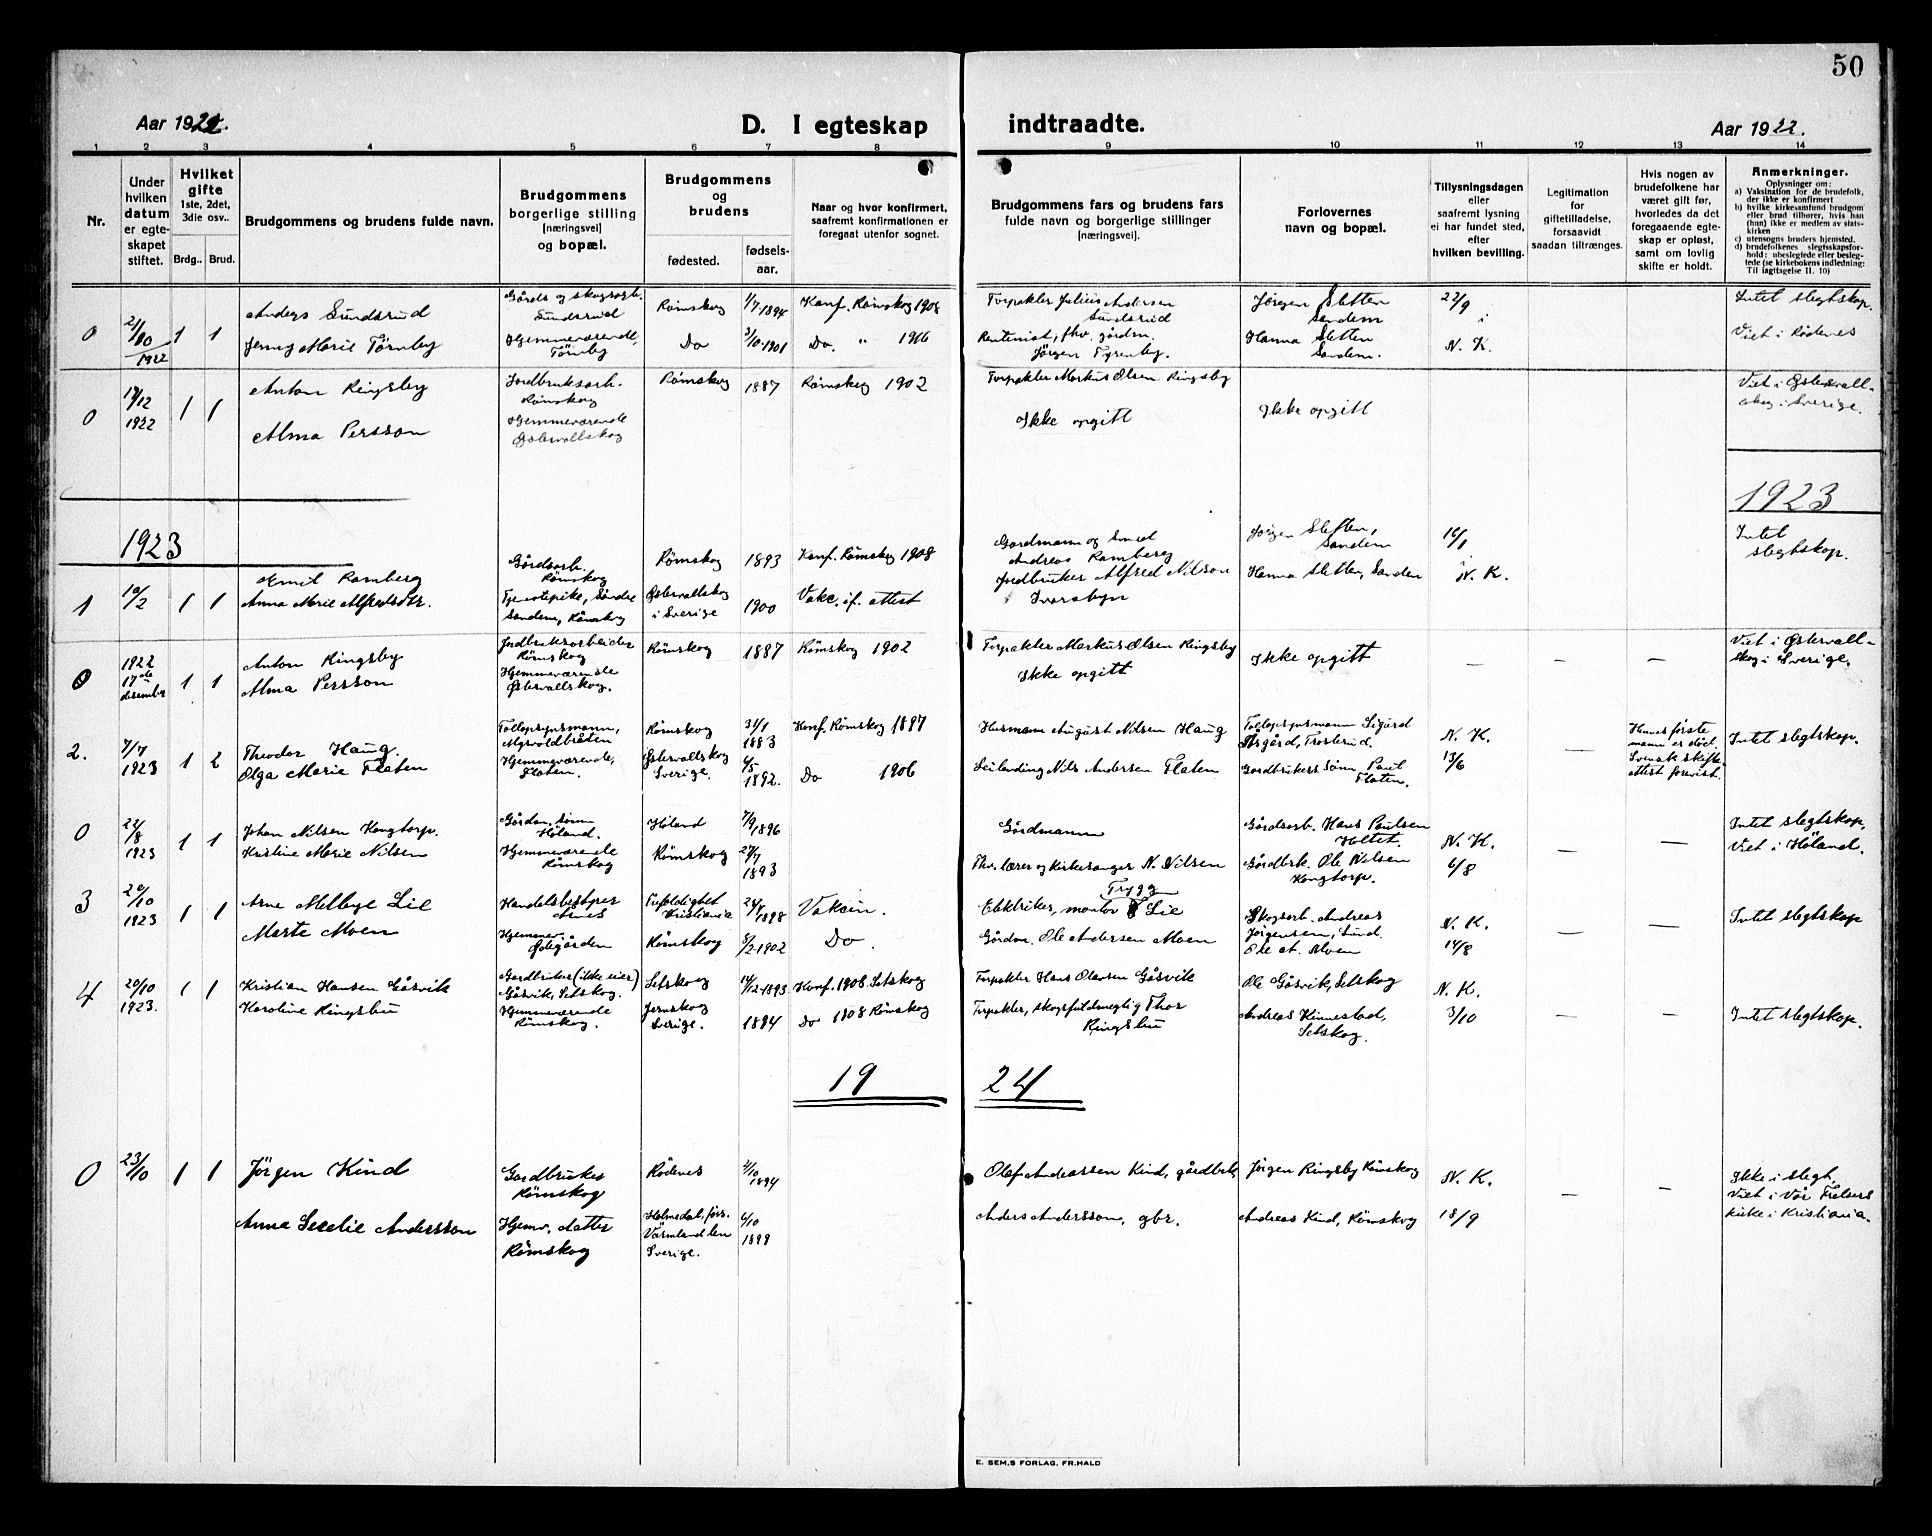 50
Aar 1922.
D. I egteskap
indtraadte.
Aar 1922.
1 2 3 4 5 6 7 8
9 10 11 12 13 14
Nr.
Under hvilken datum er egteskapet stiftet.
Hvilket gifte 1ste, 2det, 3die osv..
Brdg.. Brud.
Brudgommens og brudens fulde navn.
Brudgommens borgerlige stilling (næringsvei) og bopæl.
Brudgommens og brudens
fødested.
fødsels-aar.
Naar og hvor konfirmert, saafremt konfirmationen er foregaat utenfor sognet.
Brudgommens fars og brudens fars fulde navn og borgerlige stillinger (næringsvei).
Forlovernes navn og bopæl.
Tillysningsdagen eller saafremt lysning ei har fundet sted, efter hvilken bevilling.
Legitimation for giftetilladelse, forsaavidt saadan tiltrænges.
Hvis nogen av brudefolkene har været gift før, hvorledes da det foregaaende egteskap er opløst, samt om lovlig skifte er holdt.
Anmerkninger.
Oplysninger om:
a) Vaksination for de brudefolk, der ikke er konfirmert
b) hvilke kirkesamfund brudgom eller brud tilhører, hvis han (hun) ikke er medlem av statskirken
c) utensogns bruders hjemsted.
d) brudefolkenes slegtsskapsforhold: ubeslegtede eller beslegtede (se kirkebokens indledning: Til iagttagelse II. 10)
0 21/10 1922 1 1 Anders Sundsrud Gårds og skogsarb. Sundsrud Rømskog 1/7 1894 Konf. Rømskog 1908 Forpakter Julius Andersen Sundsrud Jørgen Sletten Sandem 22/9 Intet slegtskap.
Jenny Marie Törnby Hjemmeværende, Törnby Do 3/10 1901 Do. " 1916 Rentenist, fhv. gårdm. Jørgen Tyrenby. Hanna Sletten Sandem. N. K. Viet i Rødenes
0 17/12 1922 1 1 Anton Ringsby Jordbruksarb. Rømskog Rømskog 1887 Rømskog 1902 Forpakter Markus Olsen Ringsby Viet i Østervall-
Alma Persson Hjemmeværende Østervallskog Ikke opgitt Ikke opgitt skog i Sverige.
1923
1923
1 10/2 1 1 Emil Ramberg Gårdsarb. Rømskog Rømskog 1893 Konf. Rømskog 1908 Gårdmann og smed Andreas Ramberg Jørgen Sletten, Sandem 16/1 Intet slegtskap.
Anna Marie Alfredsdtr. Tjenestepike, Søndre Sandem, Rømskog Østervallskog i Sverige 1900 Vakc. if. attest Jordbruker Alfred Nilson Ivarsbyn Hanna Sletten, Sandem N. K.
0 1922 17de desember 1 1 Anton Ringsby Jordbruksarbeider Rømskog Rømskog 1887 Rømskog 1902 Forpakter Markus Olsen Ringsby Ikke opgitt — — — Viet i Østervall-
Alma Persson Hjemmeværende Østervallskog. Ikke opgitt skog i Sverige.
2. 7/7 1923 1 2 Theodor Haug. Tollopsynsmann, Rømskog 31/1 1883 Konf. Rømskog 1887 Husmann August Nilsen Haug Tollopsynsmann Sigurd Åsgård, Trosterud. N. K. — Hennes første mann er död. Svensk skifte-attest forevist. Intet slegtskap.
Olga Marie Flaten Hjemmeværende, Flaten. Østervallskog Sverige. 6/5 1892. Do 1906 Leilending Nils Andersen Flaten Gårdbrukers sönn Paul Flaten. 13/6
0 22/8 1923 1 1 Johan Nilsen Kongtorp. Gårdm. sönn Höland. Höland 7/9 1896 Gårdmann Gårdsarb. Hans Paulsen Holtet. N. K. — — Intet slegtskap.
Kristine Marie Nilsen Hjemmeværende Rømskog Rømskog 27/7 1893 Fhv. lærer og kirkesanger N. Nilsen Gårdbrk. Ole Nilsen Kongtorp. 6/8 Viet i Höland.
3 20/10 1923 1 1 Arne Melbye Lie Handelsbestyrer Kristiania 24/4 1898 Vaksin. Elektriker, montør Trygg Lie Skogsarb. Andreas Jörgensen, Lund. N. K. — — Intet slegtskap
Marte Moen Hjemmev. Rømskog 5/2 1902 Do. Gårdm. Ole Andersen Moen Ole A. Moen 14/8
4 20/10 1923. 1 1 Kristian Hansen Gåsvik Gårdbruker (ikke eier) Gåsvik, Setskog. Setskog 14/12 1893 Konf. 1908 Setskog Forpakter Hans Olavsen Gåsvik Ole Gåsvik, Setskog N. K.
Karoline Ringsbu Hjemmeværende Rømskog. Jernskog Sverige. 1894 Do 1908 Rømskog Forpakter, skogsfuldmegtig Thor Ringsbu Andreas Kinnestad, Setskog. 3/10 Intet slegtskap.
19 24
0 23/10 1 1 Jörgen Kind Gårdbruker Rømskog Rödenes 4/10 1894 Olaf Andreassen Kind, gårdbrk. Jörgen Ringsby Rømskog N. K. — — Ikke i slegt.
Anna Secelie Andersson Hjemv. datter Rømskog Holmedal, førs. Värmland len Sverige. 6/10 1898 Anders Andersson, gbr. Andreas Kind, Rømskog 18/9 Viet i Vår Frelsers kirke i Kristiania.
E. SEM,S FORLAG, FR.HALD